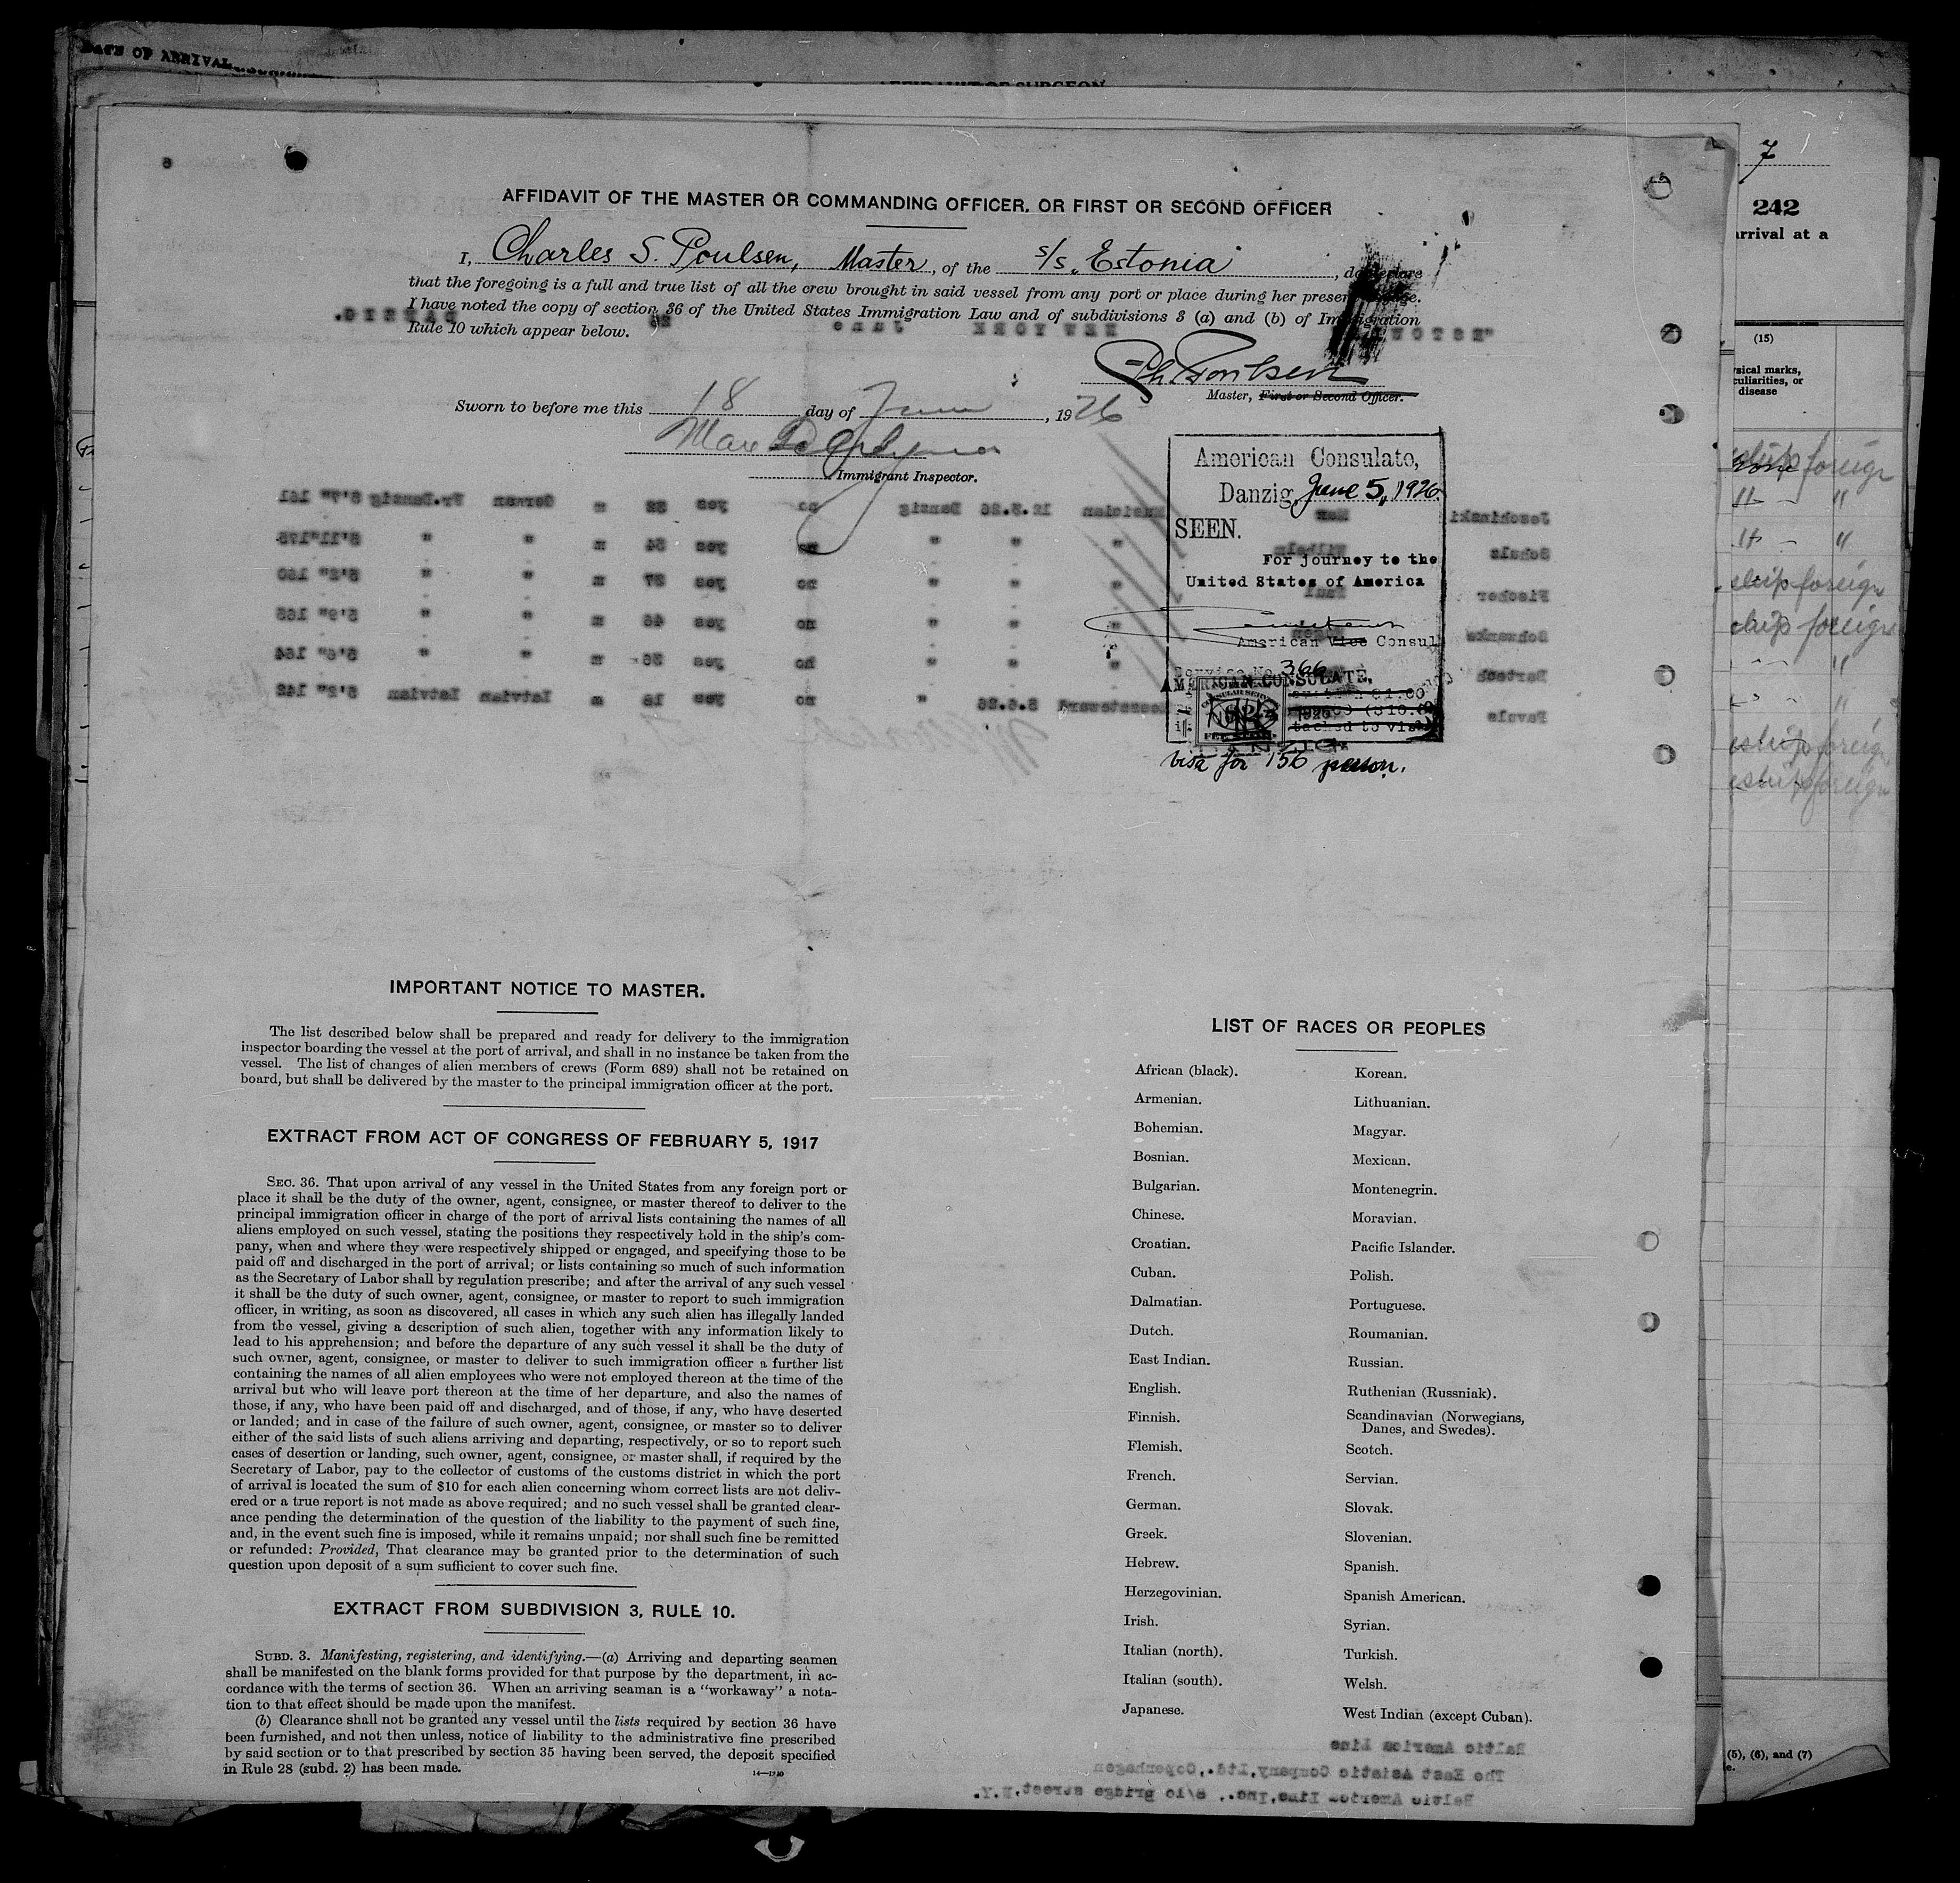 DATE OF ARRIVAL
AFFIDAVIT OF SURGEON
7
242
arrival at a
(15)
AFFIDAVIT OF THE MASTER OR COMMANDING OFFICER, OR FIRST OR SECOND OFFICER
I, Charles S. Poulsen, Master, of the s/s "Estonia", do declare
that the foregoing is a full and true list of all the crew brought in said vessel from any port or place during her present voyage.
I have noted the copy of section 36 of the United States Immigration Law and of subdivisions 3 (a) and (b) of Immigration
Rule 10 which appear below.
Poulsen
Master, First or Second Officer.
Sworn to before me this 18 day of June, 1926
Immigrant Inspector.
American Consulate,
Danzig, June 5, 1926.
SEEN.
For journey to the
United States of America
American Vice Consul
Service No. 366
AMERICAN CONSULATE,
visa for 156 person.
Jeschinski Max Musician 12.5.26 Danzig no yes 22 m German Fr.Danzig 5'7" 141
Schulz Wilhelm " " " no yes 54 m " " 5'11" 175
Fischer Paul " " " no yes 37 m " " 5'2" 160
Schwanke " " " no yes 46 m " " 5'9" 165
Bartsch " " " no yes 36 m " " 5'6" 164
Pavuls Messsteward 5.6.26 " no yes 18 m Latvian Latvian 5'2" 142
physical marks,
peculiarities, or
disease
ship foreign
IMPORTANT NOTICE TO MASTER.
The list described below shall be prepared and ready for delivery to the immigration
inspector boarding the vessel at the port of arrival, and shall in no instance be taken from the
vessel. The list of changes of alien members of crews (Form 689) shall not be retained on
board, but shall be delivered by the master to the principal immigration officer at the port.
EXTRACT FROM ACT OF CONGRESS OF FEBRUARY 5, 1917
SEC. 36. That upon arrival of any vessel in the United States from any foreign port or
place it shall be the duty of the owner, agent, consignee, or master thereof to deliver to the
principal immigration officer in charge of the port of arrival lists containing the names of all
aliens employed on such vessel, stating the positions they respectively hold in the ship's com-
pany, when and where they were respectively shipped or engaged, and specifying those to be
paid off and discharged in the port of arrival; or lists containing so much of such information
as the Secretary of Labor shall by regulation prescribe; and after the arrival of any such vessel
it shall be the duty of such owner, agent, consignee, or master to report to such immigration
officer, in writing, as soon as discovered, all cases in which any such alien has illegally landed
from the vessel, giving a description of such alien, together with any information likely to
lead to his apprehension; and before the departure of any such vessel it shall be the duty of
such owner, agent, consignee, or master to deliver to such immigration officer a further list
containing the names of all alien employees who were not employed thereon at the time of the
arrival but who will leave port thereon at the time of her departure, and also the names of
those, if any, who have been paid off and discharged, and of those, if any, who have deserted
or landed; and in case of the failure of such owner, agent, consignee, or master so to deliver
either of the said lists of such aliens arriving and departing, respectively, or so to report such
cases of desertion or landing, such owner, agent, consignee, or master shall, if required by the
Secretary of Labor, pay to the collector of customs of the customs district in which the port
of arrival is located the sum of $10 for each alien concerning whom correct lists are not deliv-
ered or a true report is not made as above required; and no such vessel shall be granted clear-
ance pending the determination of the question of the liability to the payment of such fine,
and, in the event such fine is imposed, while it remains unpaid; nor shall such fine be remitted
or refunded: Provided, That clearance may be granted prior to the determination of such
question upon deposit of a sum sufficient to cover such fine.
EXTRACT FROM SUBDIVISION 3, RULE 10.
SUBD. 3. Manifesting, registering, and identifying.—(a) Arriving and departing seamen
shall be manifested on the blank forms provided for that purpose by the department, in ac-
cordance with the terms of section 36. When an arriving seaman is a "workaway" a nota-
tion to that effect should be made upon the manifest.
(b) Clearance shall not be granted any vessel until the lists required by section 36 have
been furnished, and not then unless, notice of liability to the administrative fine prescribed
by said section or to that prescribed by section 35 having been served, the deposit specified
in Rule 28 (subd. 2) has been made.
LIST OF RACES OR PEOPLES
African (black).
Armenian.
Bohemian.
Bosnian.
Bulgarian.
Chinese.
Croatian.
Cuban.
Dalmatian.
Dutch.
East Indian.
English.
Finnish.
Flemish.
French.
German.
Greek.
Hebrew.
Herzegovinian.
Irish.
Italian (north).
Italian (south).
Japanese.
Korean.
Lithuanian.
Magyar.
Mexican.
Montenegrin.
Moravian.
Pacific Islander.
Polish.
Portuguese.
Roumanian.
Russian.
Ruthenian (Russniak).
Scandinavian (Norwegians,
Danes, and Swedes).
Scotch.
Servian.
Slovak.
Slovenian.
Spanish.
Spanish American.
Syrian.
Turkish.
Welsh.
West Indian (except Cuban).
Baltic America Line
The East Asiatic Company,Ltd.,Copenhagen
Baltic America Line,Inc., 8/10 Bridge street,N.Y.
(5), (6), and (7)